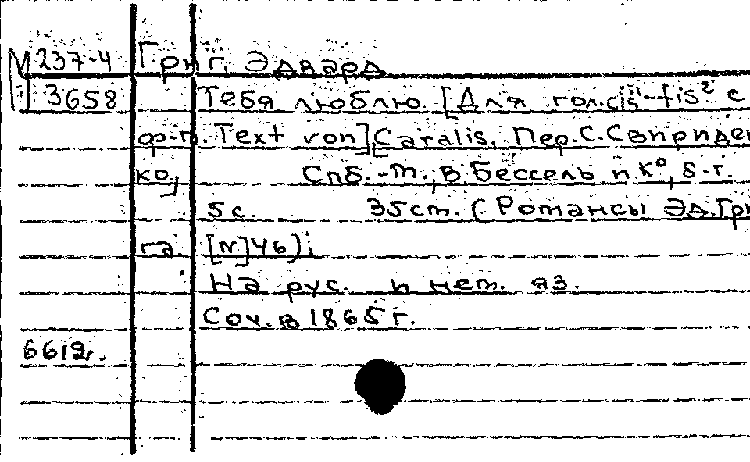 М 237-4 Григ, Эдвард
3658 Тебя люблю. [Для гол. cis¹-fis² с
ф-п. Text von] Caralis. Пер. С. Свириден-
ко, Спб.-М., В. Бессель и К°, s.г.
5с. 35см. (Романсы Эд. Гри
га. [N] 46);
На рус. и нем. яз.
Соч. в 1865 г.
6612г.